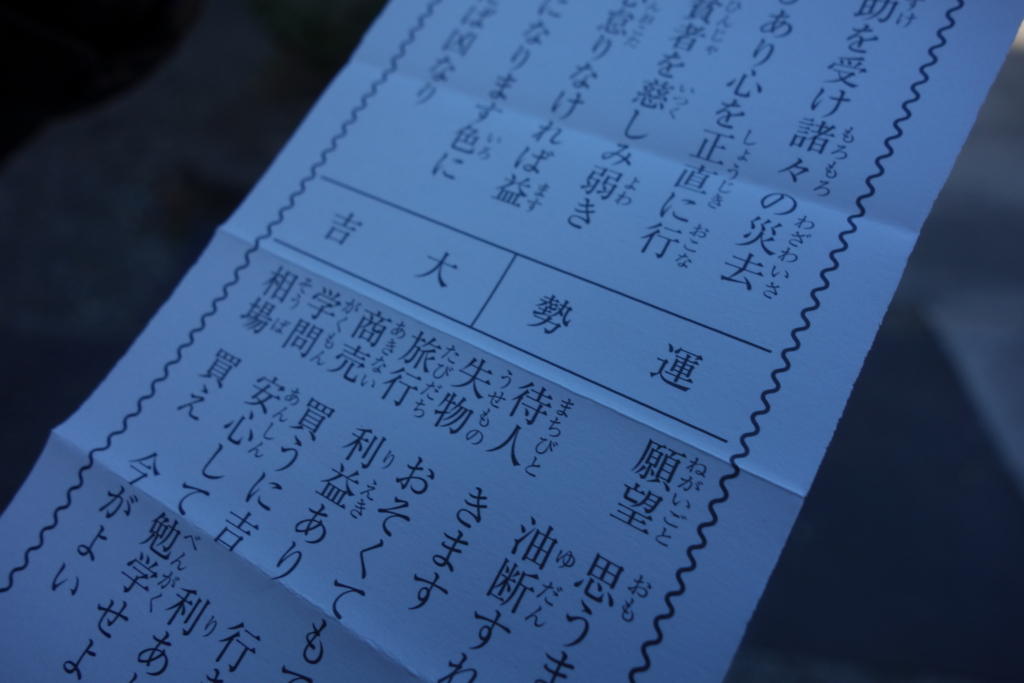 助を受け諸々の災去
あり心を正直に行
貧者を慈しみ弱き
怠りなければ益
になります色に
ば凶なり
運勢 大吉
願望 思うま
油断す
待人 きます
失物 おそくても
旅行 利益あり 行
商売 買うに吉 利あ
学問 安心して勉学せよ
相場 買え 今がよい